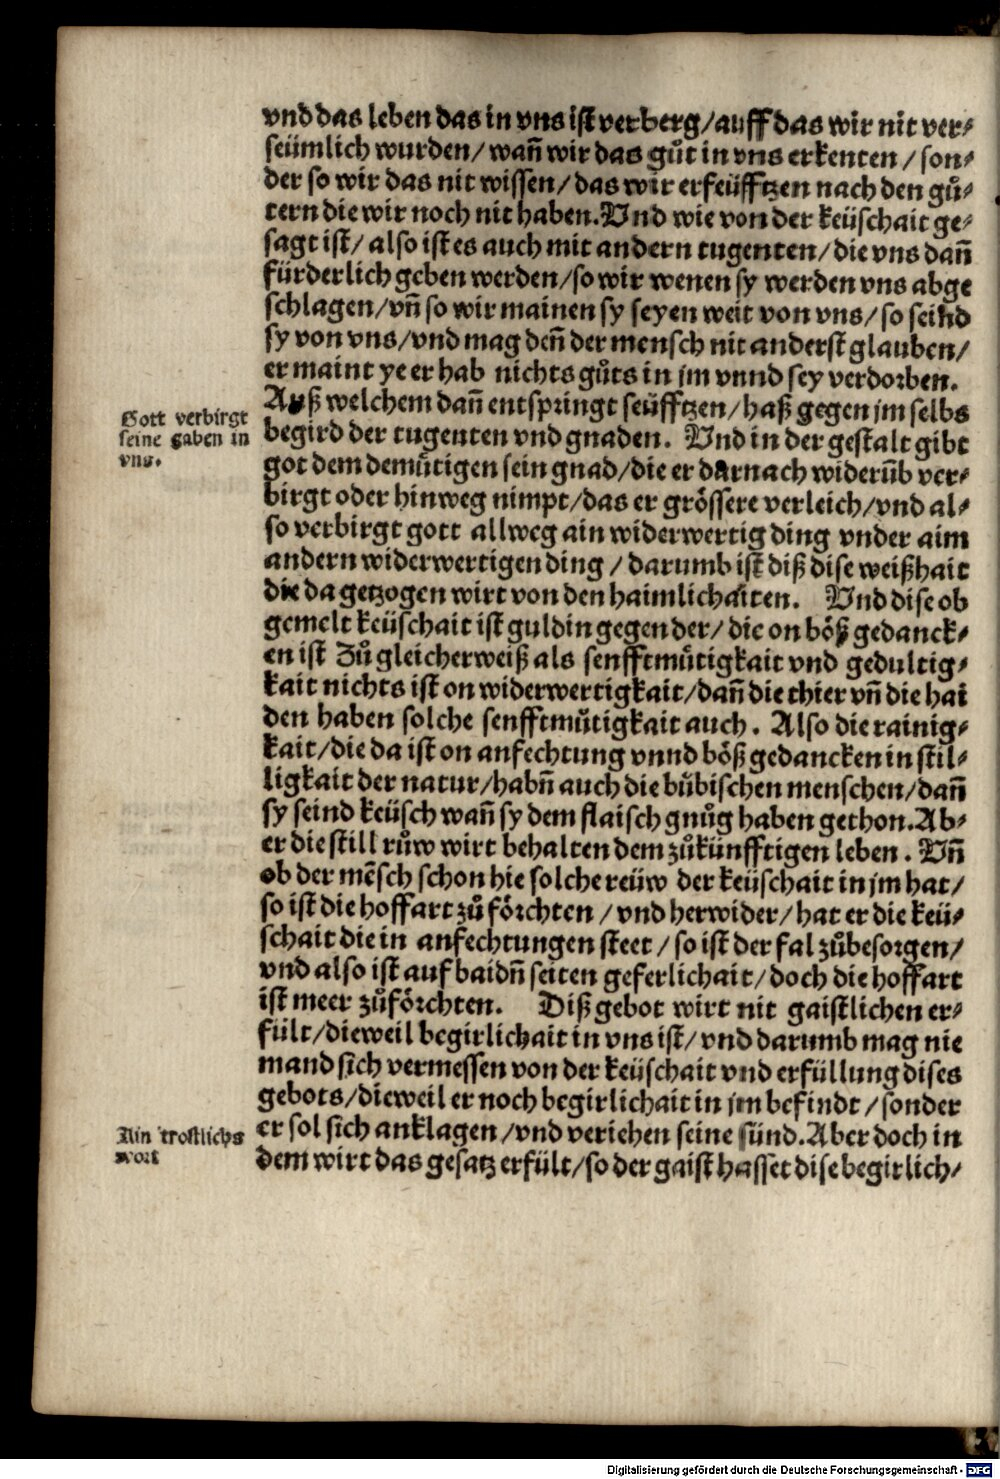 vnd das leben das in vns ist verberg/auff das wir nit ver⸗
seümlich wurden/wañ wir das gůt in vns erkenten/son⸗
der so wir das nit wissen/das wir erseüfftzen nach den gů⸗
tern die wir noch nit haben. Vnd wie von der keüschait ge⸗
sagt ist/also ist es auch mit andern tugenten/die vns dañ
fürderlich geben werden/so wir wenen sy werden vns abge
schlagen/vñ so wir mainen sy seyen weit von vns/so seind
sy von vns/vnd mag deñ der mensch nit anderst glauben/
er maint ye er hab nichts gůts in jm vnnd sey verdorben.
Auß welchem dañ entspringt seüfftzen/haß gegen jm selbs
Gott verbirgt
seine gaben in
vns.
begird der tugenten vnd gnaden. Vnd in der gestalt gibt
got dem demůtigen sein gnad/die er darnach widerüb ver⸗
birgt oder hinweg nimpt/das er grössere verleich/vnd al⸗
so verbirgt gott allweg ain widerwertig ding vnder aim
andern widerwertigen ding/darumb ist diß dise weißhait
die da getzogen wirt von den haimlichaiten. Vnd dise ob
gemelt keüschait ist guldin gegen der/die on böß gedanck⸗
en ist Zů gleicherweiß als senfftmůtigkait vnd gedultig⸗
kait nichts ist on widerwertigkait/dañ die thier vñ die hai
den haben solche senfftmůtigkait auch. Also die rainig⸗
kait/die da ist on anfechtung vnnd böß gedancken in stil⸗
ligkait der natur/habñ auch die bůbischen menschen/dañ
sy seind keüsch wañ sy dem flaisch gnůg haben gethon. Ab⸗
er die still růw wirt behalten dem zůkünfftigen leben. Vñ
ob der mēsch schon hie solche reüw der keüschait in jm hat/
so ist die hoffart zů förchten/vnd herwider/hat er die keü⸗
schait die in anfechtungen steet/so ist der fal zůbesorgen/
vnd also ist auf baidñ seiten geferlichait/doch die hoffart
ist meer zůförchten. Diß gebot wirt nit gaistlichen er⸗
fült/dieweil begirlichait in vns ist/vnd darumb mag nie
mand sich vermessen von der keüschait vnd erfüllung dises
gebots/dieweil er noch begirlichait in jm befindt/sonder
Ain trostlichs
wort
er sol sich anklagen/vnd veriehen seine sünd. Aber doch in
dem wirt das gesatz erfült/so der gaist hasset dise begirlich⸗
Digitalisierung gefördert durch die Deutsche Forschungsgemeinschaft - DFG